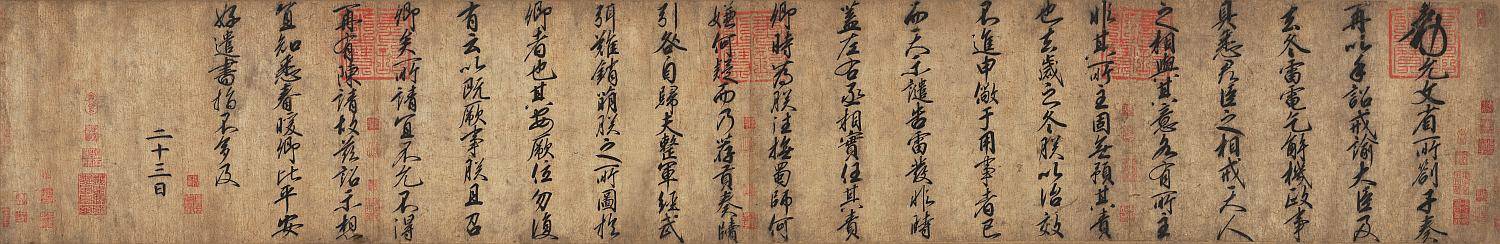 勅允文省所劄子奏
再以手詔戒諭大臣及
去冬雷電乞解機政事
具悉君臣之相戒天人
之相與其意各有所主
非其所主固無預其責
也去歲之冬朕以治效
不進申儆于用事者已
而天示譴告雷發非時
蓋左右丞相實任其責
卿時為朕往撫蜀師何
嫌何疑而乃荐貢奏牘
引咎自歸夫整軍經武
弭難銷萌朕之所圖於
卿者也其安厥位勿復
有云以既厥事朕且召
卿矣所請宜不允不得
再有陳請故茲詔示想
宜知悉春暖卿比平安
好遣書指不多及
二十三日